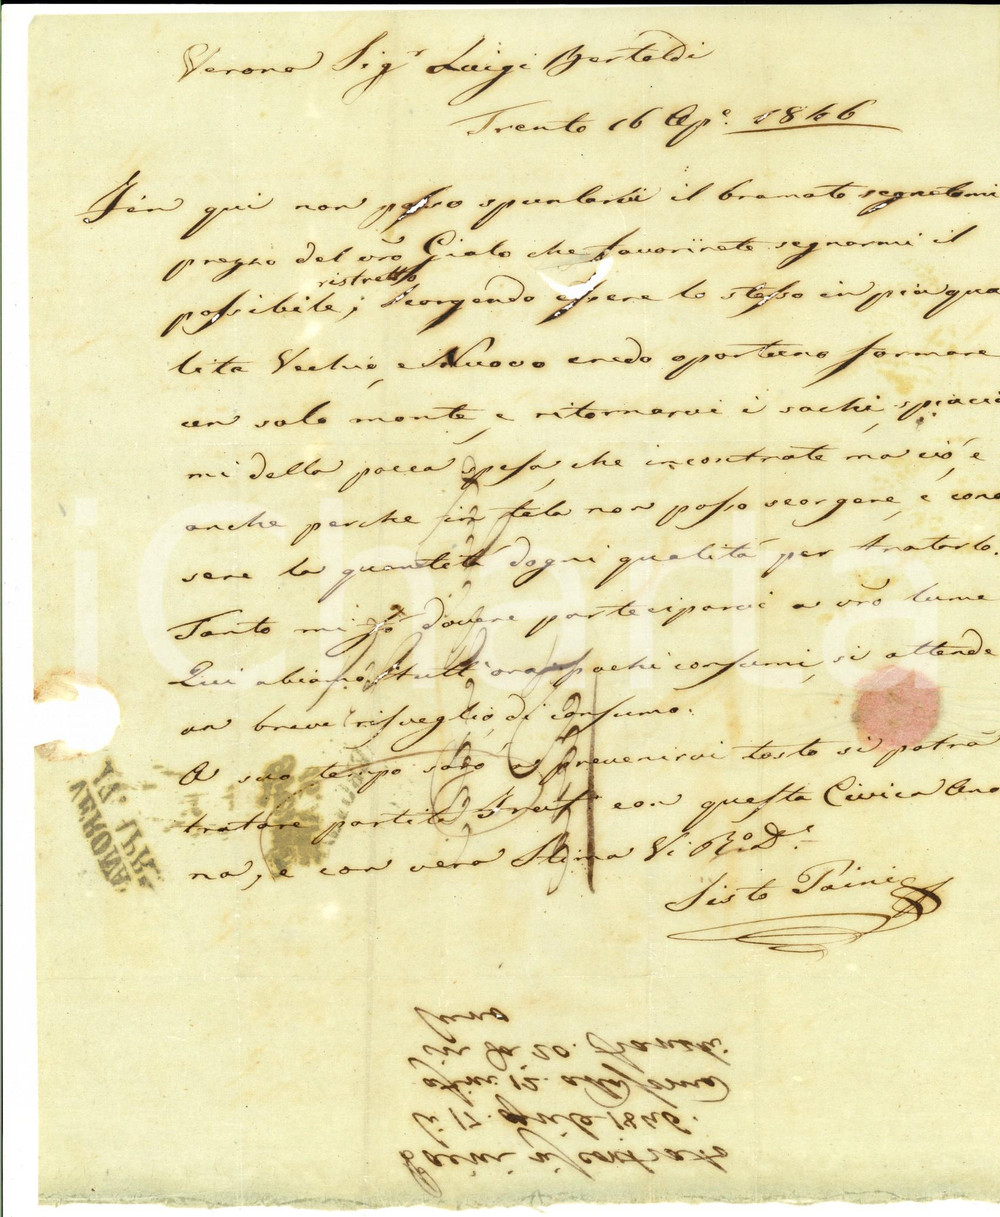 Verona Sig.r Luigi Bertoldi
Trento 16 Ap.e 1846
Fén qui non posso spuntarvi il bramato segnatomi
prezzo del vro Gialo che favorirete segnarmi il
ristretto
possibile; scorgendo essere lo stesso in più qua
lità Vechio, e Nuovo credo oportuno formare
un solo monte, e ritornarvi i sachi, spiacia
mi della pocca spesa, che incontrate ma ciò, é
anche perche in tela non posso scorgere, é cono
sere la quantità dogni qualità per tratarlo.
Tanto mi fò dovere parteciparvi a vro lume
Qui abiamo tutt'ora pochi consumi, si attende
un breve risveglio, di consumo.
A suo tempo sarò a prevenirvi tosto si potrà
tratare partite con questa Civica Ano
na, e con vera Stima Vi
Sisto Paini
VERONA
17. APR.
Paini
li 17. Aprile 1846.
12.
20. Franchi
iCharta